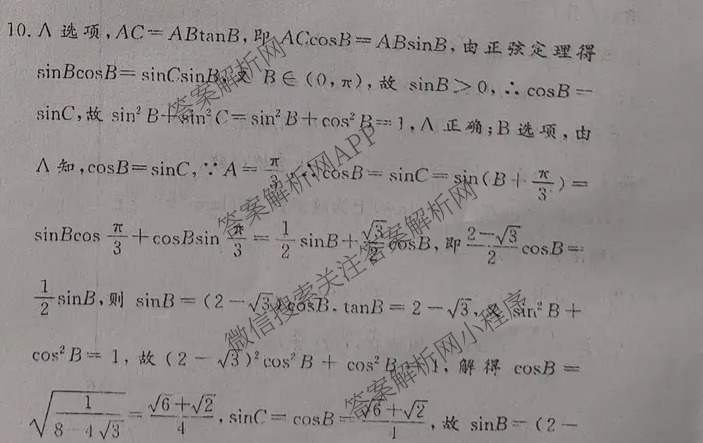 10. A 选项, AC=ABtanB, 即 ACcosB=ABsinB, 由正弦定理得
sinBcosB=sinCsinB, 又 B∈(0,π), 故 sinB>0, ∴cosB=
sinC, 故 sin²B+sin²C=sin²B+cos²B=1, A 正确; B 选项, 由
A 知, cosB=sinC, ∵A=π/3, ∴cosB=sinC=sin(B+π/3)=
sinBcos π/3+cosBsin π/3=1/2 sinB+√3/2 cosB, 即 (2-√3)/2 cosB=
1/2 sinB, 则 sinB=(2-√3)cosB. tanB=2-√3, 又 sin²B+
cos²B=1, 故 (2-√3)²cos²B+cos²B=1, 解得 cosB=
√(1/(8-4√3))=(√6+√2)/4, sinC=cosB=(√6+√2)/4, 故 sinB=(2-
答案解析网
答案解析网APP
微信搜索关注答案解析网
答案解析网小程序